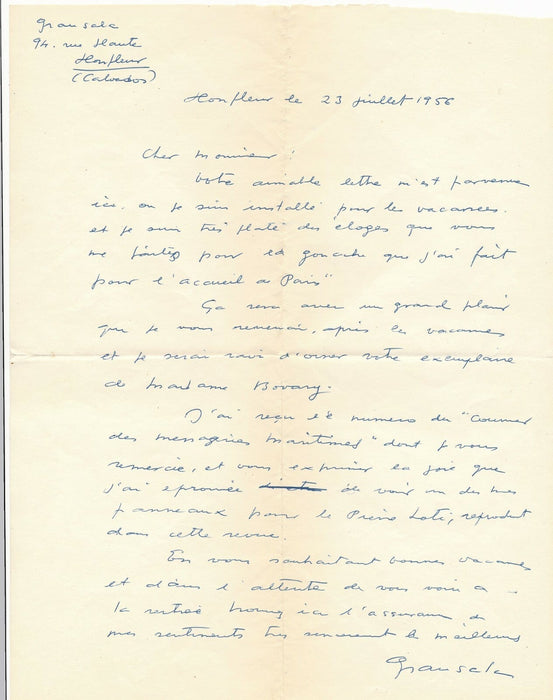 Grau sala
94. rue Haute
Honfleur
(Calvados)
Honfleur le 23 juillet 1956
Cher Monsieur :
Votre aimable lettre m'est parvenue
ici. ou je suis installé pour les vacances.
et je suis très flaté des eloges que vous
me faites pour la gouache que j'ai fait
pour l'accueil de Paris"
Ça sera avec un grand plaisir
que je vous reverrai, après les vacances
et je serai ravi d'orner votre exemplaire
de Madame Bovary.
J'ai reçu le numero du "Courrier
des messageries maritimes" dont je vous
remercie, et vous exprimer la joie que
j'ai eprouvée de voir un des mes
panneaux pour le Pierre Loti, reproduit
dans cette revue.
En vous souhaitant bonnes vacances
et dans l'attente de vous voir a
la rentrée ici l'assurance de
mes sentiments tres sincerement les meilleurs
Grau sala